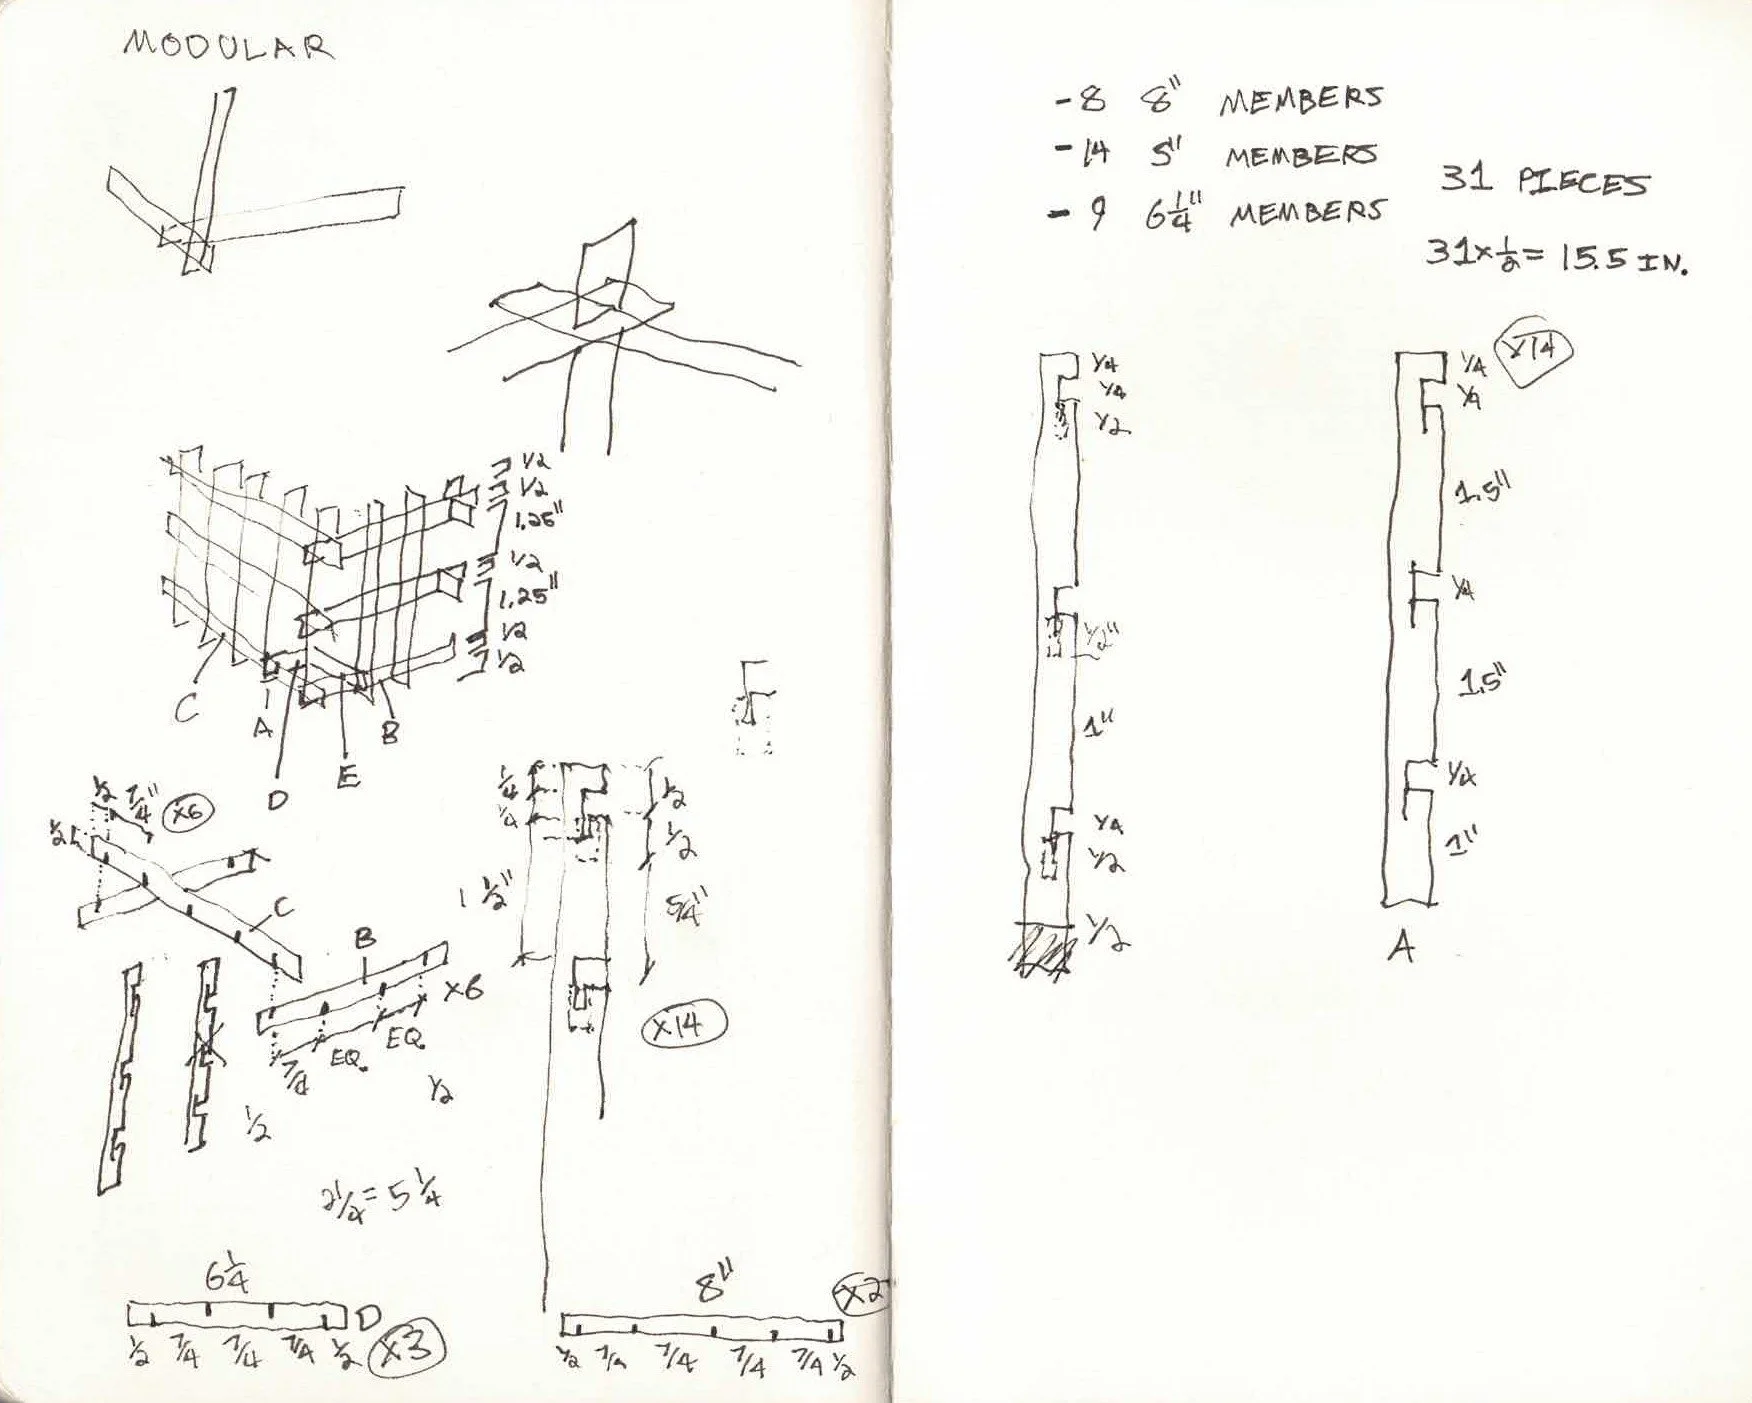 MODULAR
1/2
1/2
1.25"
1/2
1.25"
1/2
1/2
C
A
B
E
D
1/2 7/4" X6
1/2
C
B
X6
7/4 EQ. EQ.
1/2
1/2
2 1/2 = 5 1/4
1/4
1/4
1 1/2"
1/2
1/2
5/4"
X14
6 1/4
D
1/2 7/4 7/4 7/4 1/2
X3
8"
X2
1/2 7/4 7/4 7/4 7/4 1/2
- 8 8" MEMBERS
- 14 5" MEMBERS
- 9 6 1/4" MEMBERS
31 PIECES
31 x 1/2 = 15.5 IN.
1/4
1/4
1/2
1/2"
1"
1/4
1/2
1/2
X14
1/4
1/4
1.5"
1/4
1.5"
1/4
1"
A